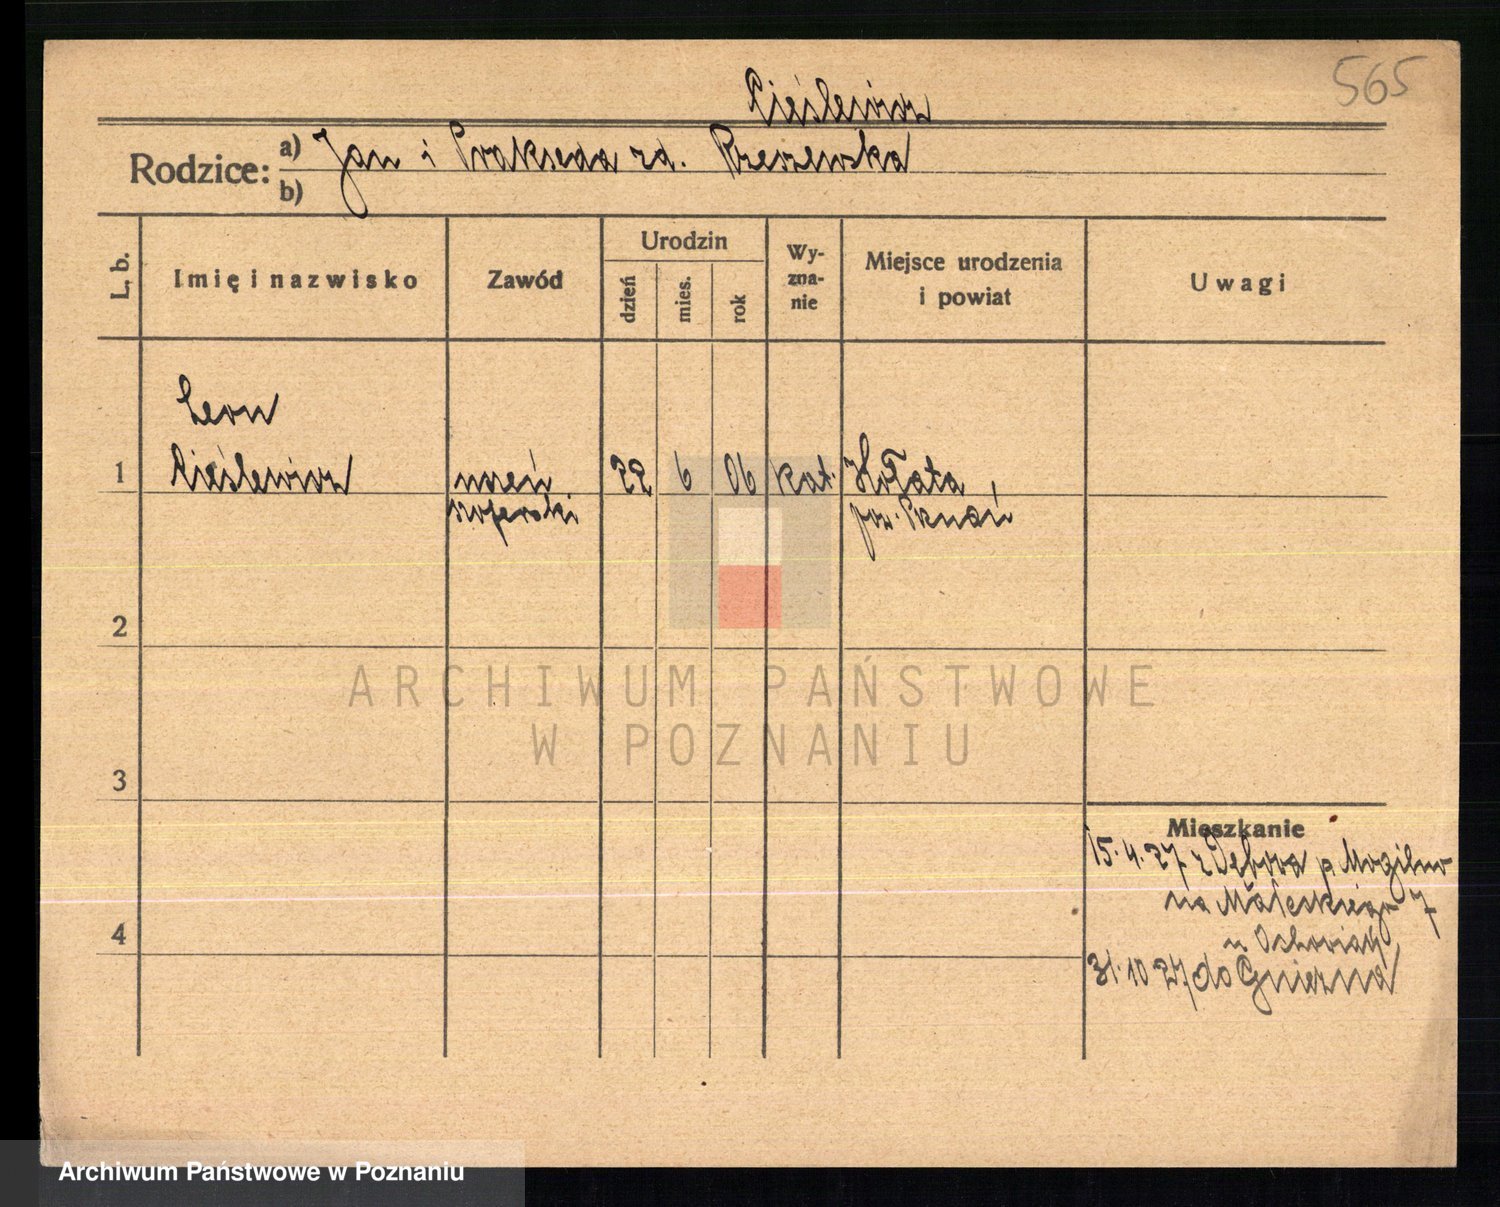 565
Cieślewicz
Rodzice: a) Jan i Prakseda zd. Rzeszewska
b)
L. b.
Imię i nazwisko
Zawód
Urodzin
dzień
mies.
rok
Wy-
zna-
nie
Miejsce urodzenia
i powiat
Uwagi
Leon
1 Cieślewicz uczeń 22 6 06 kat.
szoferski
pow. Poznań
2
3
4
Mieszkanie
15.4.27 z p Mogilno
na Małeckiego 7
u
31.10 27 do Gniezna
ARCHIWUM PAŃSTWOWE
W POZNANIU
Archiwum Państwowe w Poznaniu